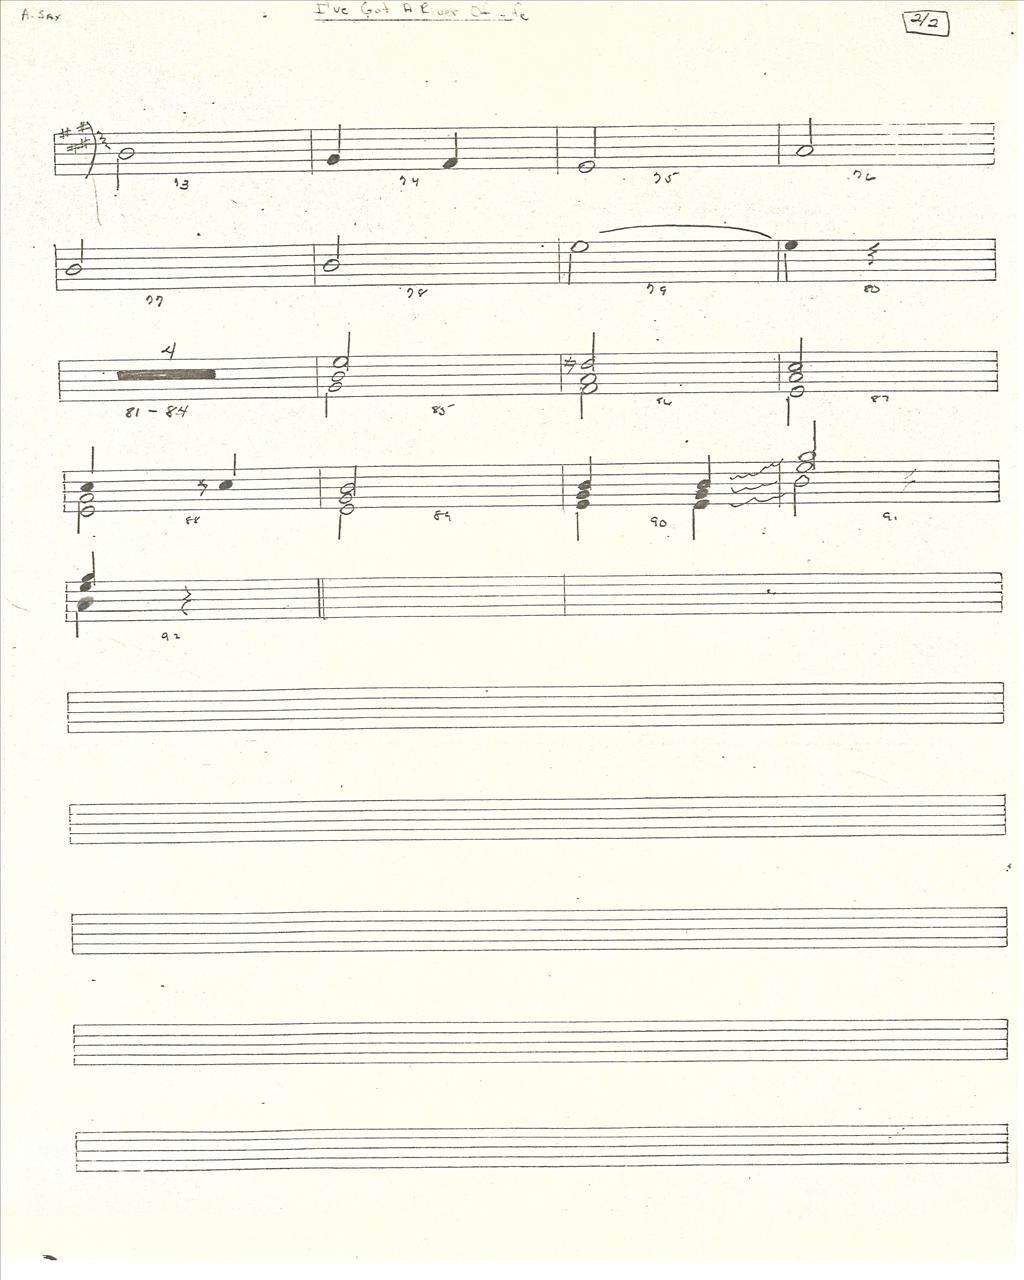 A. Sax
I've Got A River O
2/2
73 74 75 76
77 78 79 80
4
81 - 84 85 86 87
88 89 90 91
92